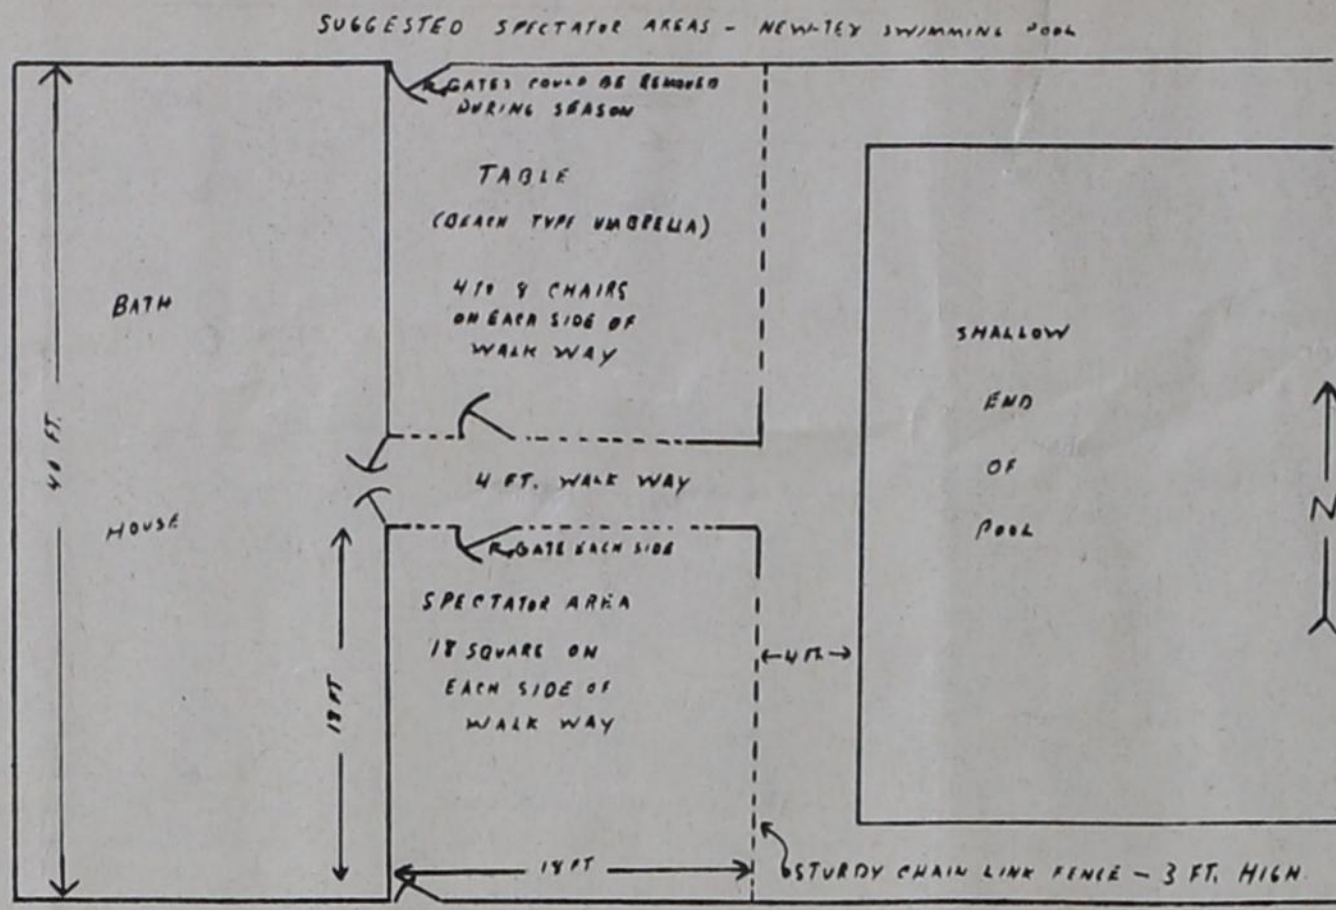 SUGGESTED SPECTATOR AREAS - NEW-TEY SWIMMING POOL
GATES COULD BE REMOVED
DURING SEASON
TABLE
(BEACH TYPE UMBRELLA)
4 TO 8 CHAIRS
ON EACH SIDE OF
WALK WAY
BATH
HOUSE
40 FT.
4 FT. WALK WAY
GATE EACH SIDE
SPECTATOR AREA
18 SQUARE ON
EACH SIDE OF
WALK WAY
18 FT
18 FT
4 FT.
SHALLOW
END
OF
POOL
N
STURDY CHAIN LINK FENCE - 3 FT. HIGH.